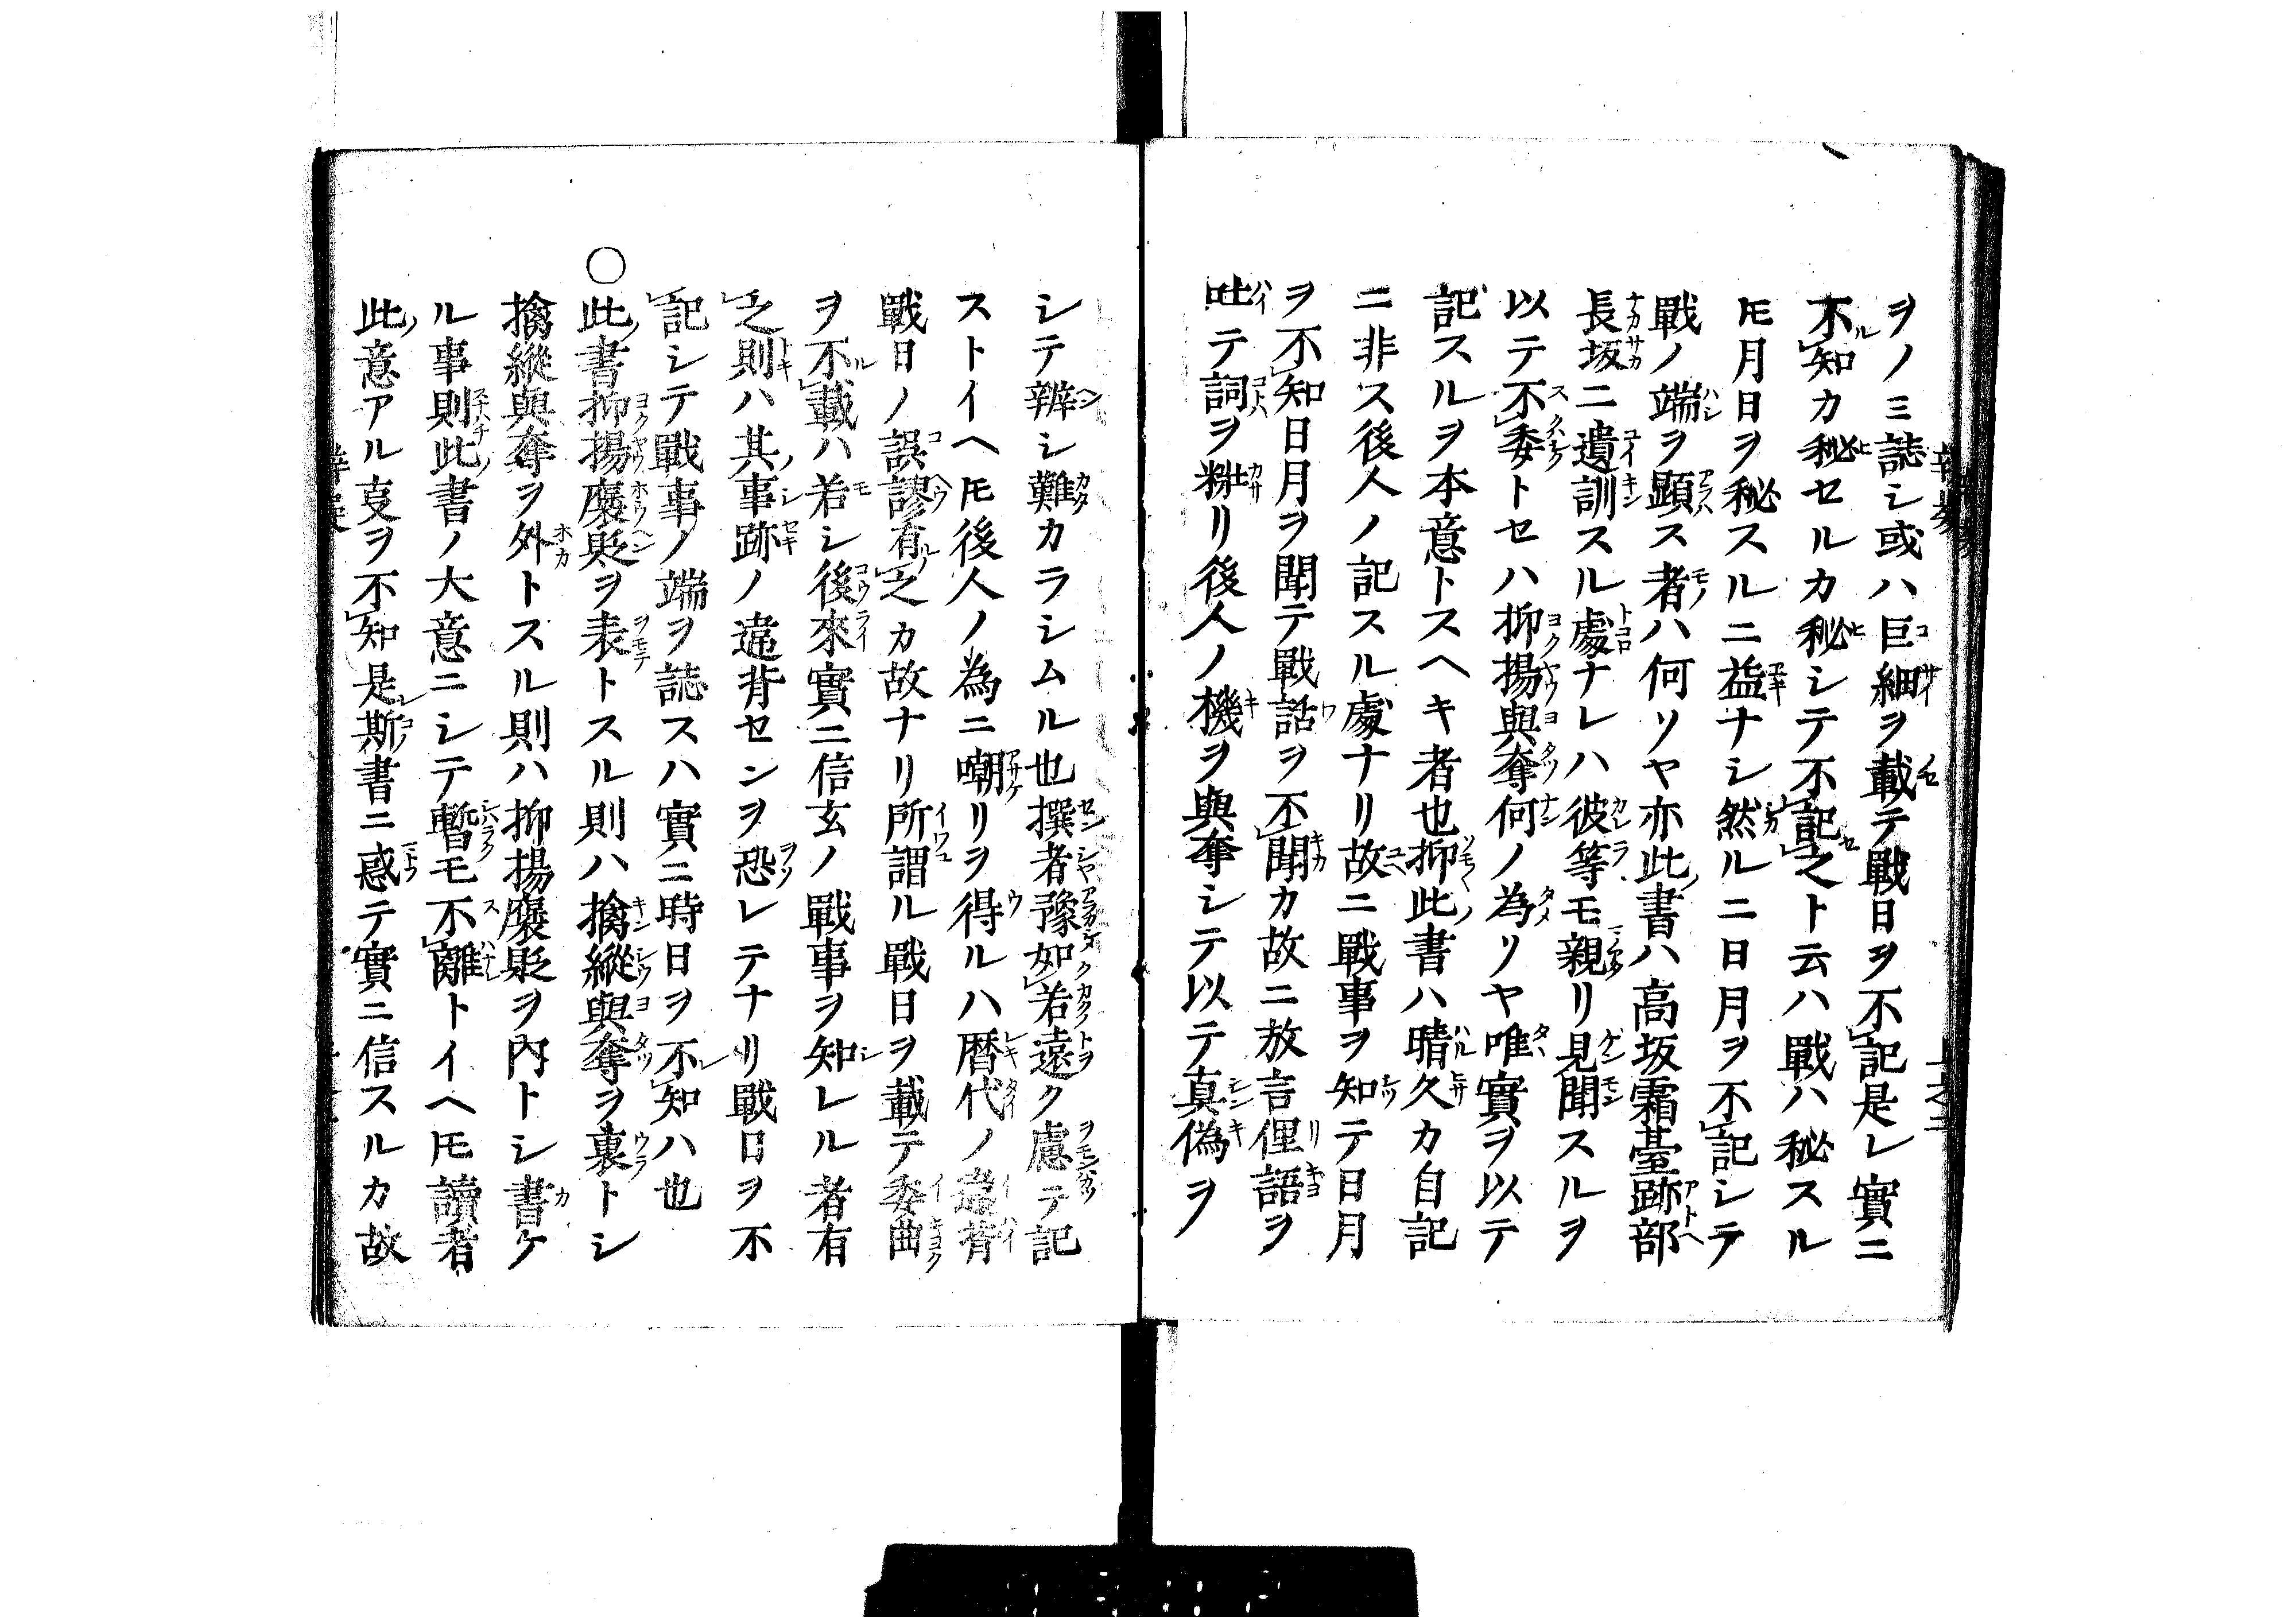 ヲノミ誌シ或ハ巨細ヲ載テ戰日ヲ不記是レ實ニ
不知カ秘セルカ秘シテ不記之ト云ハ戰ハ秘スル
𪜈月日ヲ秘スルニ益ナシ然ルニ日月ヲ不記シテ
戰ノ端ヲ顕ス者ハ何ソヤ亦此書ハ高坂霜臺跡部
長坂ニ遺訓スル處ナレハ彼等モ親リ見聞スルヲ
以テ不委トセハ抑揚與奪何ノ為リヤ唯實ヲ以テ
記スルヲ本意トスヘキ者也抑此書ハ晴久カ自記
ニ非ス後人ノ記スル處ナリ故ニ戰事ヲ知テ日月
ヲ不知日月ヲ聞テ戰話ヲ不聞カ故ニ放言俚語ヲ
吐テ詞ヲ粧リ後人ノ機ヲ與奪シテ以テ真偽ヲ
シテ辨シ難カラシムル也撰者豫如若遠ク慮テ記
ストイヘ𪜈後人ノ為ニ嘲リヲ得ルハ暦代ノ違背
戰日ノ誤謬有之カ故ナリ所謂ル戰日ヲ載テ委曲
ヲ不載ハ若シ後來實ニ信玄ノ戰事ヲ知レル者有
之則ハ其事跡ノ違背センヲ恐レテナリ戰日ヲ不
記シテ戰事ノ端ヲ誌スハ實ニ時日ヲ不知ハ也
○此書抑揚褒貶ヲ表トスル則ハ擒縱與奪ヲ裏トシ
擒縱與奪ヲ外トスル則ハ抑揚褒貶ヲ内トシ書ケ
ル事則此書ノ大意ニシテ暫モ不離トイヘ𪜈讀者
此意アル叓ヲ不知是斯書ニ惑テ實ニ信スルカ故